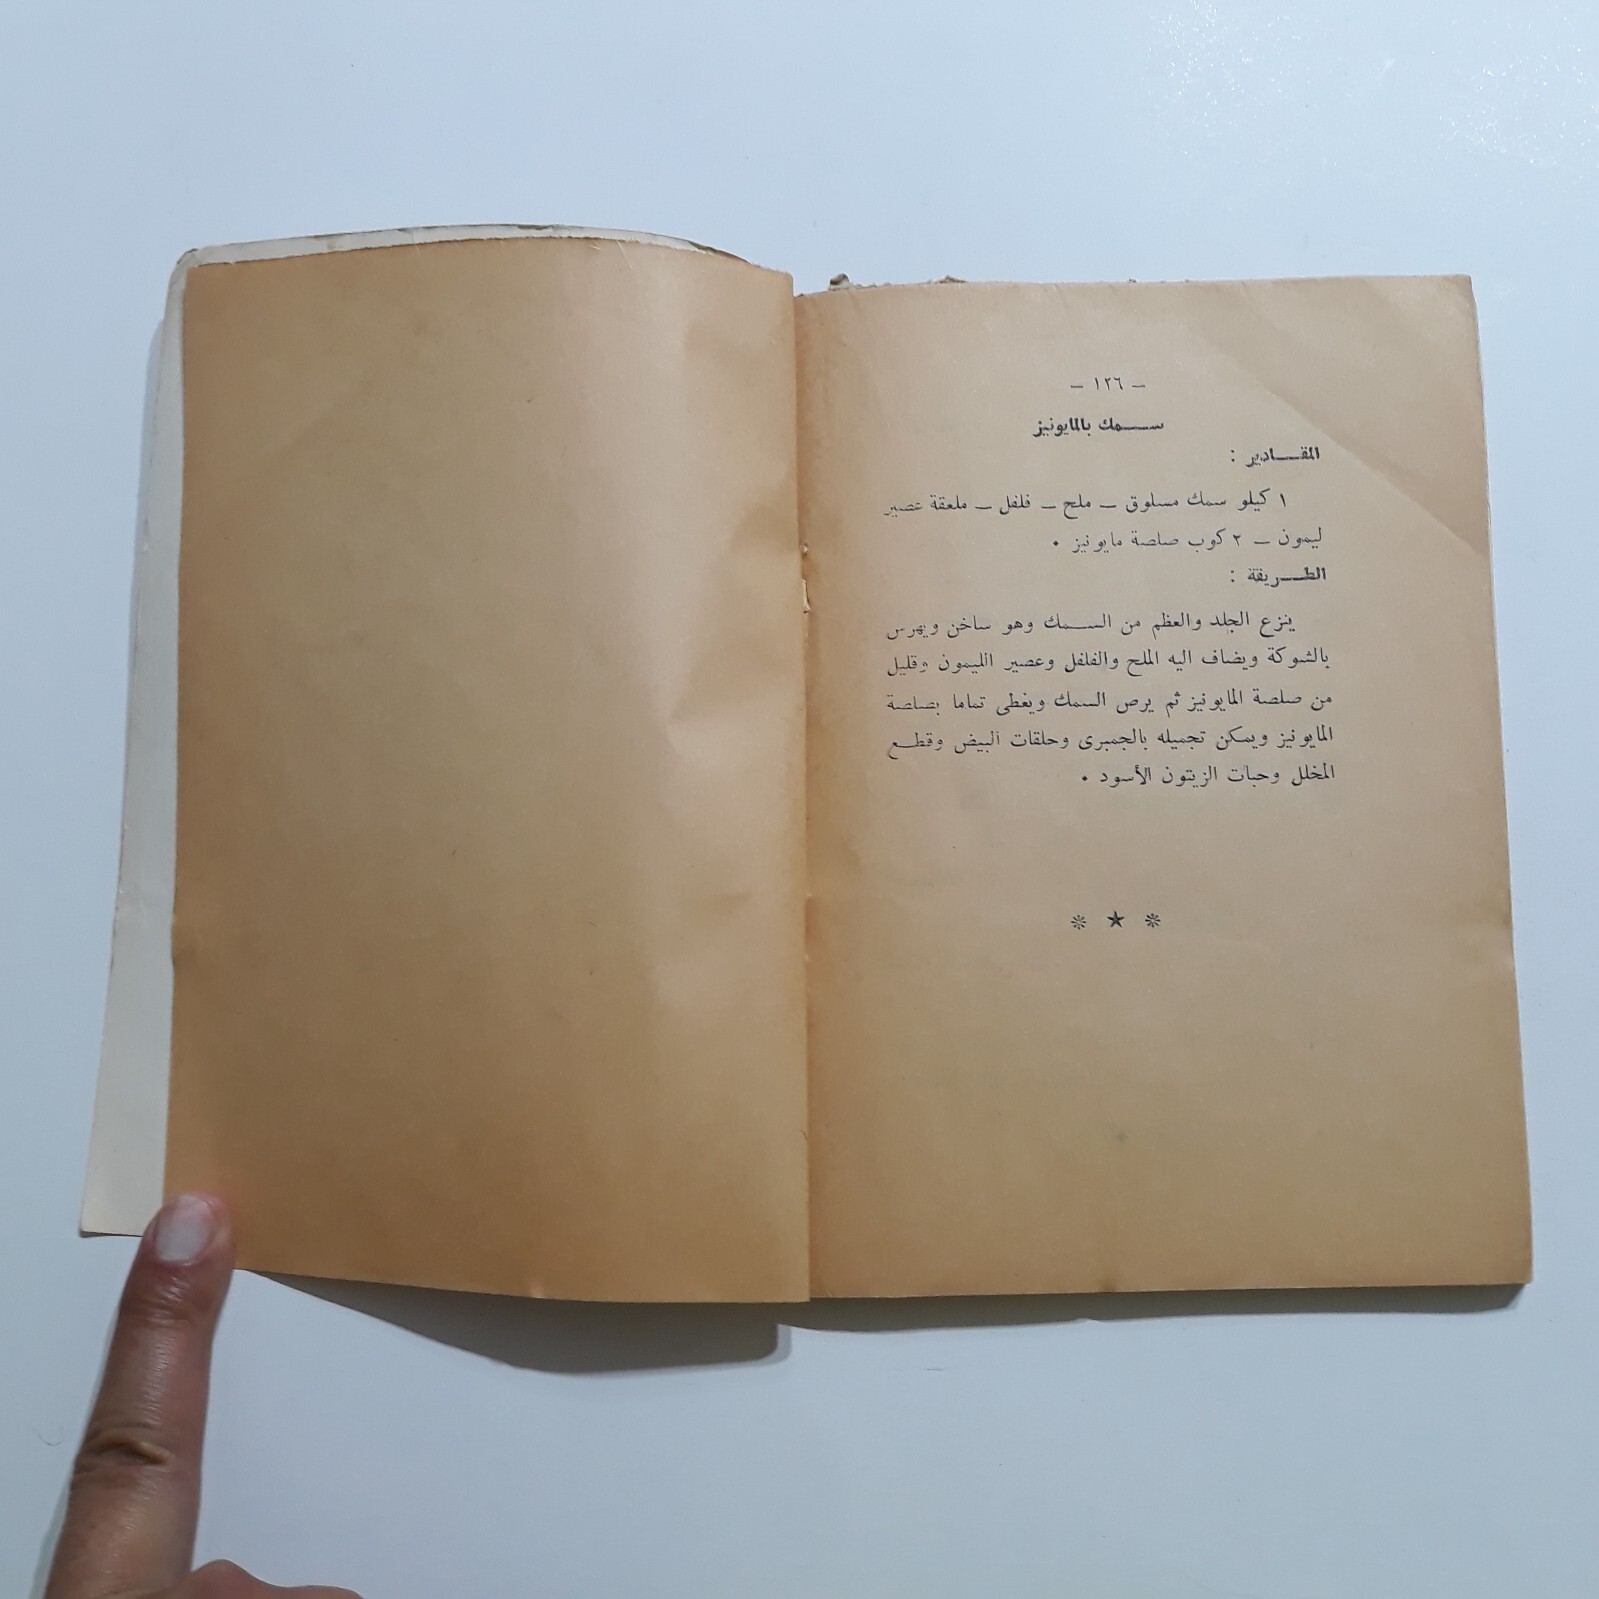 – ١٢٦ –
سمك بالمايونيز
المقادير :
١ كيلو سمك مسلوق – ملح – فلفل – ملعقة عصير
ليمون – ٢ كوب صلصة مايونيز .
الطريقة :
ينزع الجلد والعظم من السمك وهو ساخن ويهرس
بالشوكة ويضاف اليه الملح والفلفل وعصير الليمون وقليل
من صلصة المايونيز ثم يرص السمك ويغطى تماما بصلصة
المايونيز ويمكن تجميله بالجمبرى وحلقات البيض وقطع
المخلل وحبات الزيتون الأسود .